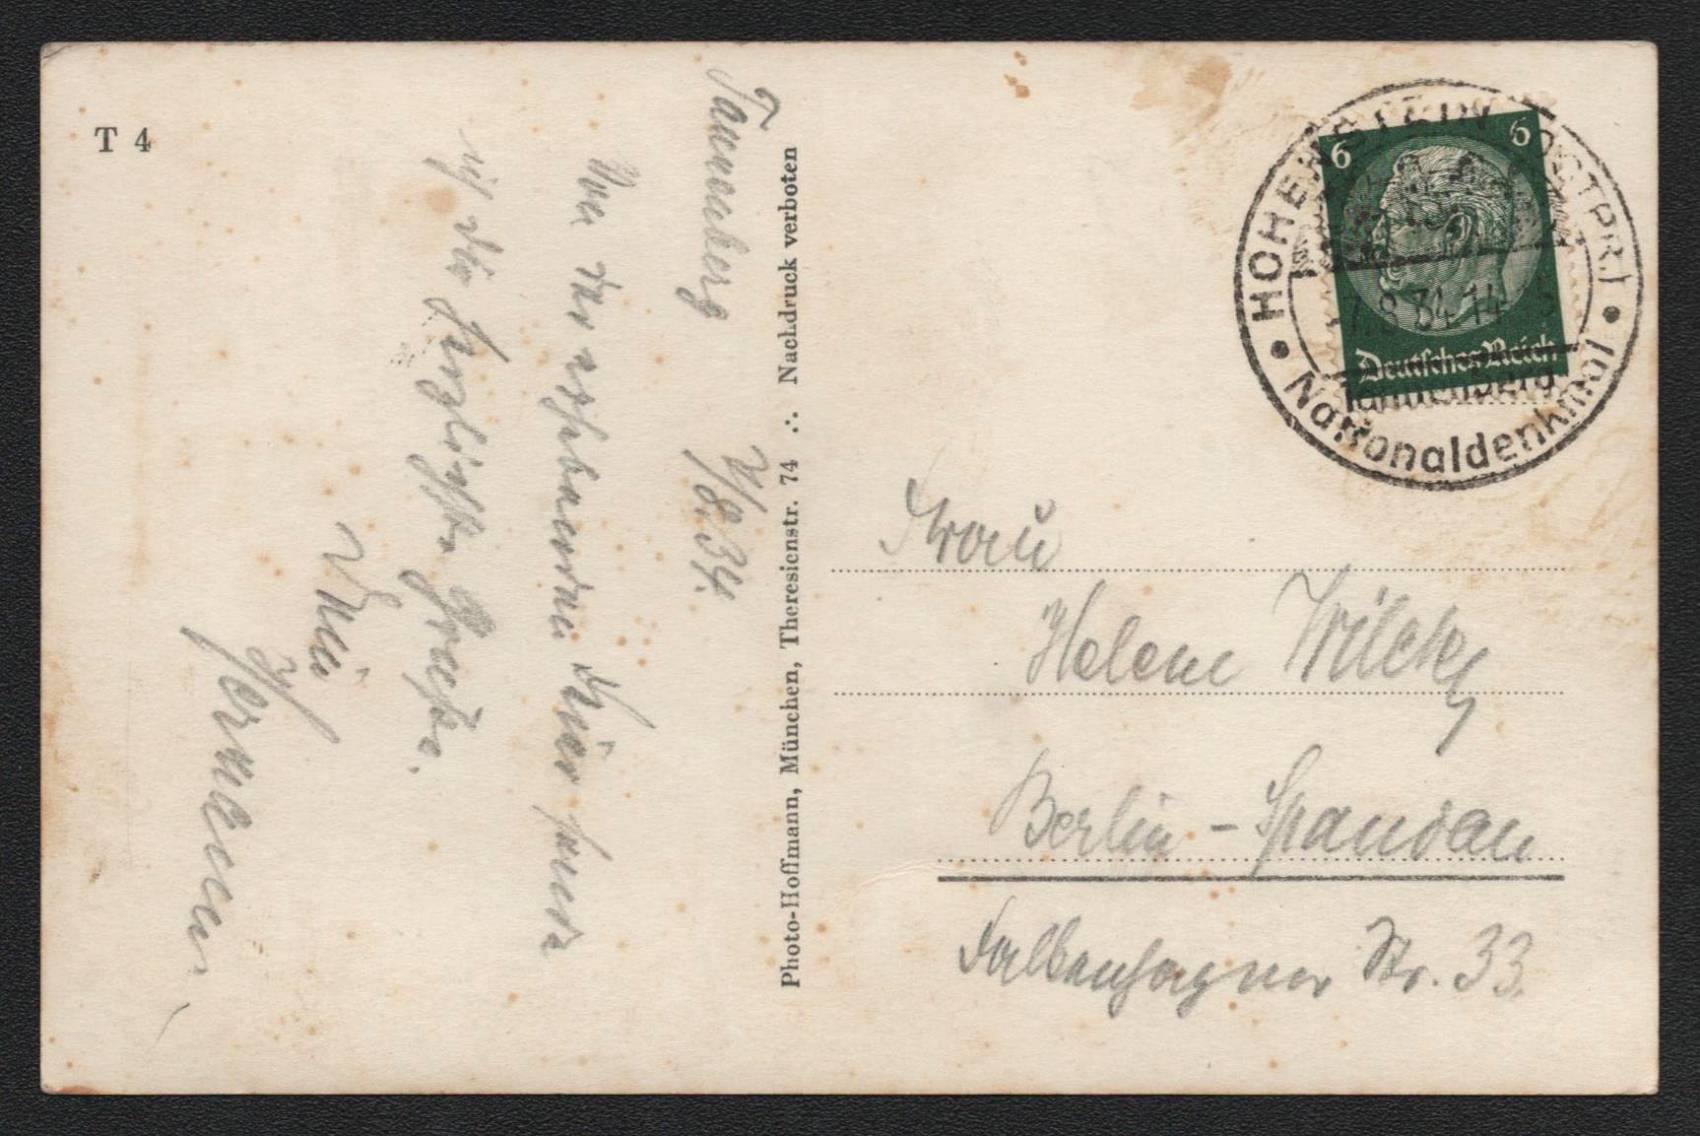 T 4
Tannenberg 7/8.34.
Von der erhabenen Feier hier
die herzlichsten Grüße.
Dein
Hermann
Photo-Hoffmann, München, Theresienstr. 74 ∴ Nachdruck verboten
HOHENSTEIN (OSTPR.)
7.8.34-14
Tannenberg
Nationaldenkmal
6 6
Deutsches Reich
Frau
Helene Wilcky
Berlin-Spandau
Falkenhagener Str. 33.